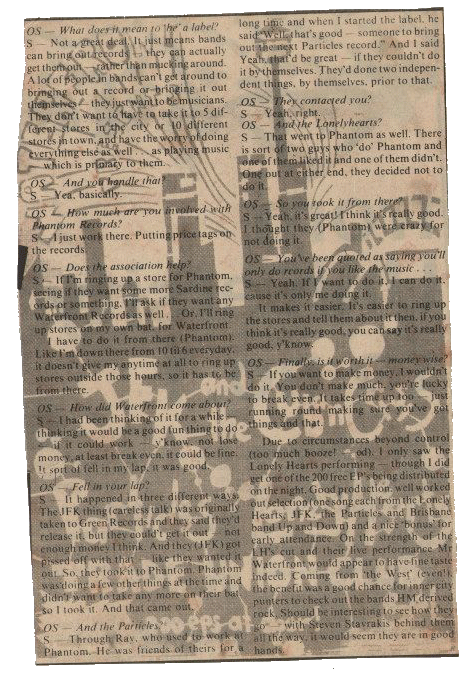 OS — What does it mean to 'be' a label?
S — Not a great deal. It just means bands
can bring out records — they can actually
get them out — rather than mucking around.
A lot of people in bands can't get around to
bringing out a record or bringing it out
themselves — they just want to be musicians.
They don't want to have to take it to 5 dif-
ferent stores in the city or 10 different
stores in town, and have the worry of doing
everything else as well — as playing music
— which is primacy to them.
OS — And you handle that?
S — Yea, basically.
OS — How much are you involved with
Phantom Records?
S — I just work there. Putting price tags on
the records.
OS — Does the association help?
S — If I'm ringing up a store for Phantom,
seeing if they want some more Sardine rec-
ords or something, I'll ask if they want any
Waterfront Records as well. Or, I'll ring
up stores on my own bat, for Waterfront.
I have to do it from there (Phantom).
Like I'm down there from 10 til 6 everyday,
it doesn't give my anytime at all to ring up
stores outside those hours, so it has to be
from there.
OS — How did Waterfront come about?
S — I had been thinking of it for a while —
thinking it would be a good fun thing to do
— if it could work — y'know, not lose
money, at least break even, it could be fine.
It sort of fell in my lap, it was good.
OS — Fell in your lap?
S — It happened in three different ways.
The JFK thing (careless talk) was originally
taken to Green Records and they said they'd
release it, but they couldn't get it out — not
enough money I think. And they (JFK) got
pissed off with that — like they wanted it
out. So, they took it to Phantom. Phantom
was doing a few other things at the time and
didn't want to take any more on their bat
so I took it. And that came out.
OS — And the Particles
S — Through Ray, who used to work at
Phantom. He was friends of theirs for a
long time and when I started the label, he
said "Well, that's good — someone to bring
out the next Particles record." And I said
Yeah, that'd be great — if they couldn't do
it by themselves. They'd done two indepen-
dent things, by themselves, prior to that.
OS — They contacted you?
S — Yeah, right.
OS — And the Lonelyhearts?
S — That went to Phantom as well. There
is sort of two guys who 'do' Phantom and
one of them liked it and one of them didn't.
One out at either end, they decided not to
do it.
OS — So you took it from there?
S — Yeah, it's great! I think it's really good.
I thought they (Phantom) were crazy for
not doing it.
OS — You've been quoted as saying you'll
only do records if you like the music . . .
S — Yeah. If I want to do it I can do it,
cause it's only me doing it.
It makes it easier. It's easier to ring up
the stores and tell them about it then, if you
think it's really good, you can say it's really
good, y'know.
OS — Finally, is it worth it — money wise?
S — If you want to make money, I wouldn't
do it. You don't make much, you're lucky
to break even. It takes up time too — just
running round making sure you've got
things and that.
Due to circumstances beyond control
(too much booze! — ed). I only saw the
Lonely Hearts performing — though I did
get one of the 200 free EP's being distributed
on the night. Good production, well worked
out selection (one song each from the Lonely
Hearts, JFK, The Particles and Brisbane
band Up and Down) and a nice 'bonus' for
early attendance. On the strength of the
LH's cut and their live performance Mr
Waterfront would appear to have fine taste
indeed. Coming from 'the West' (even'),
the benefit was a good chance for inner city
punters to check out the bands HM derived
rock. Should be interesting to see how they
go — with Steven Stavrakis behind them
all the way, it would seem they are in good
hands.